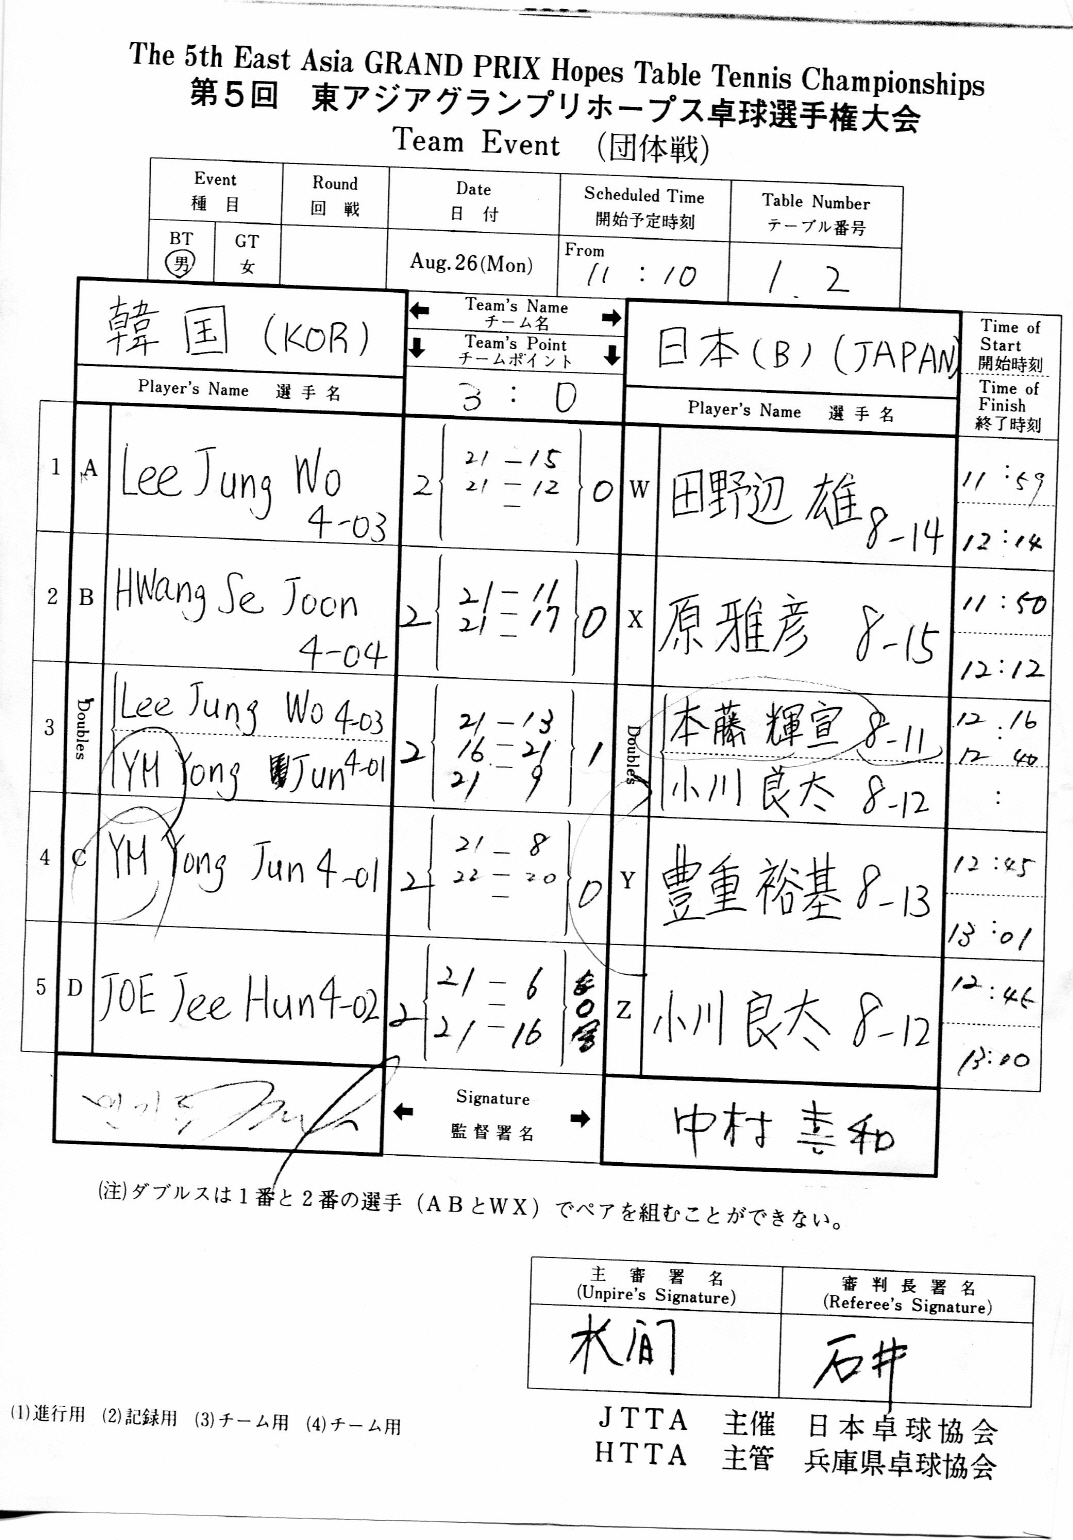 The 5th East Asia GRAND PRIX Hopes Table Tennis Championships
第5回 東アジアグランプリホープス卓球選手権大会
Team Event (団体戦)
Event 種目
Round 回戦
Date 日付
Scheduled Time 開始予定時刻
Table Number テーブル番号
BT 男
GT 女
Aug.26(Mon)
From 11:10
1.2
韓国 (KOR)
← Team's Name チーム名 →
日本(B)(JAPAN)
Time of Start 開始時刻
↓ Team's Point チームポイント ↓
Time of Finish 終了時刻
Player's Name 選手名
3 : 0
Player's Name 選手名
1 A Lee Jung Wo 4-03
2 21-15 0
21-12
-
W 田野辺 雄 8-14
11:59
12:14
2 B HWang Se Joon 4-04
2 21-11 0
21-17
-
X 原 雅彦 8-15
11:50
12:12
3 Doubles Lee Jung Wo 4-03
YM Yong Jun 4-01
2 21-13 1
16-21
21 9
Doubles 本藤 輝宣 8-11
小川 良太 8-12
12:16
12 40
:
4 C YM Yong Jun 4-01
2 21-8 0
22-20
-
Y 豊重 裕基 8-13
12:45
13:01
5 D JOE Jee Hun 4-02
2 21-6 0
21-16
Z 小川 良太 8-12
12:45
13:00
← Signature 監督署名 →
中村 喜和
(注)ダブルスは1番と2番の選手(ABとWX)でペアを組むことができない。
主審署名
(Unpire's Signature)
審判長署名
(Referee's Signature)
石井
(1)進行用 (2)記録用 (3)チーム用 (4)チーム用
JTTA 主催 日本卓球協会
HTTA 主管 兵庫県卓球協会